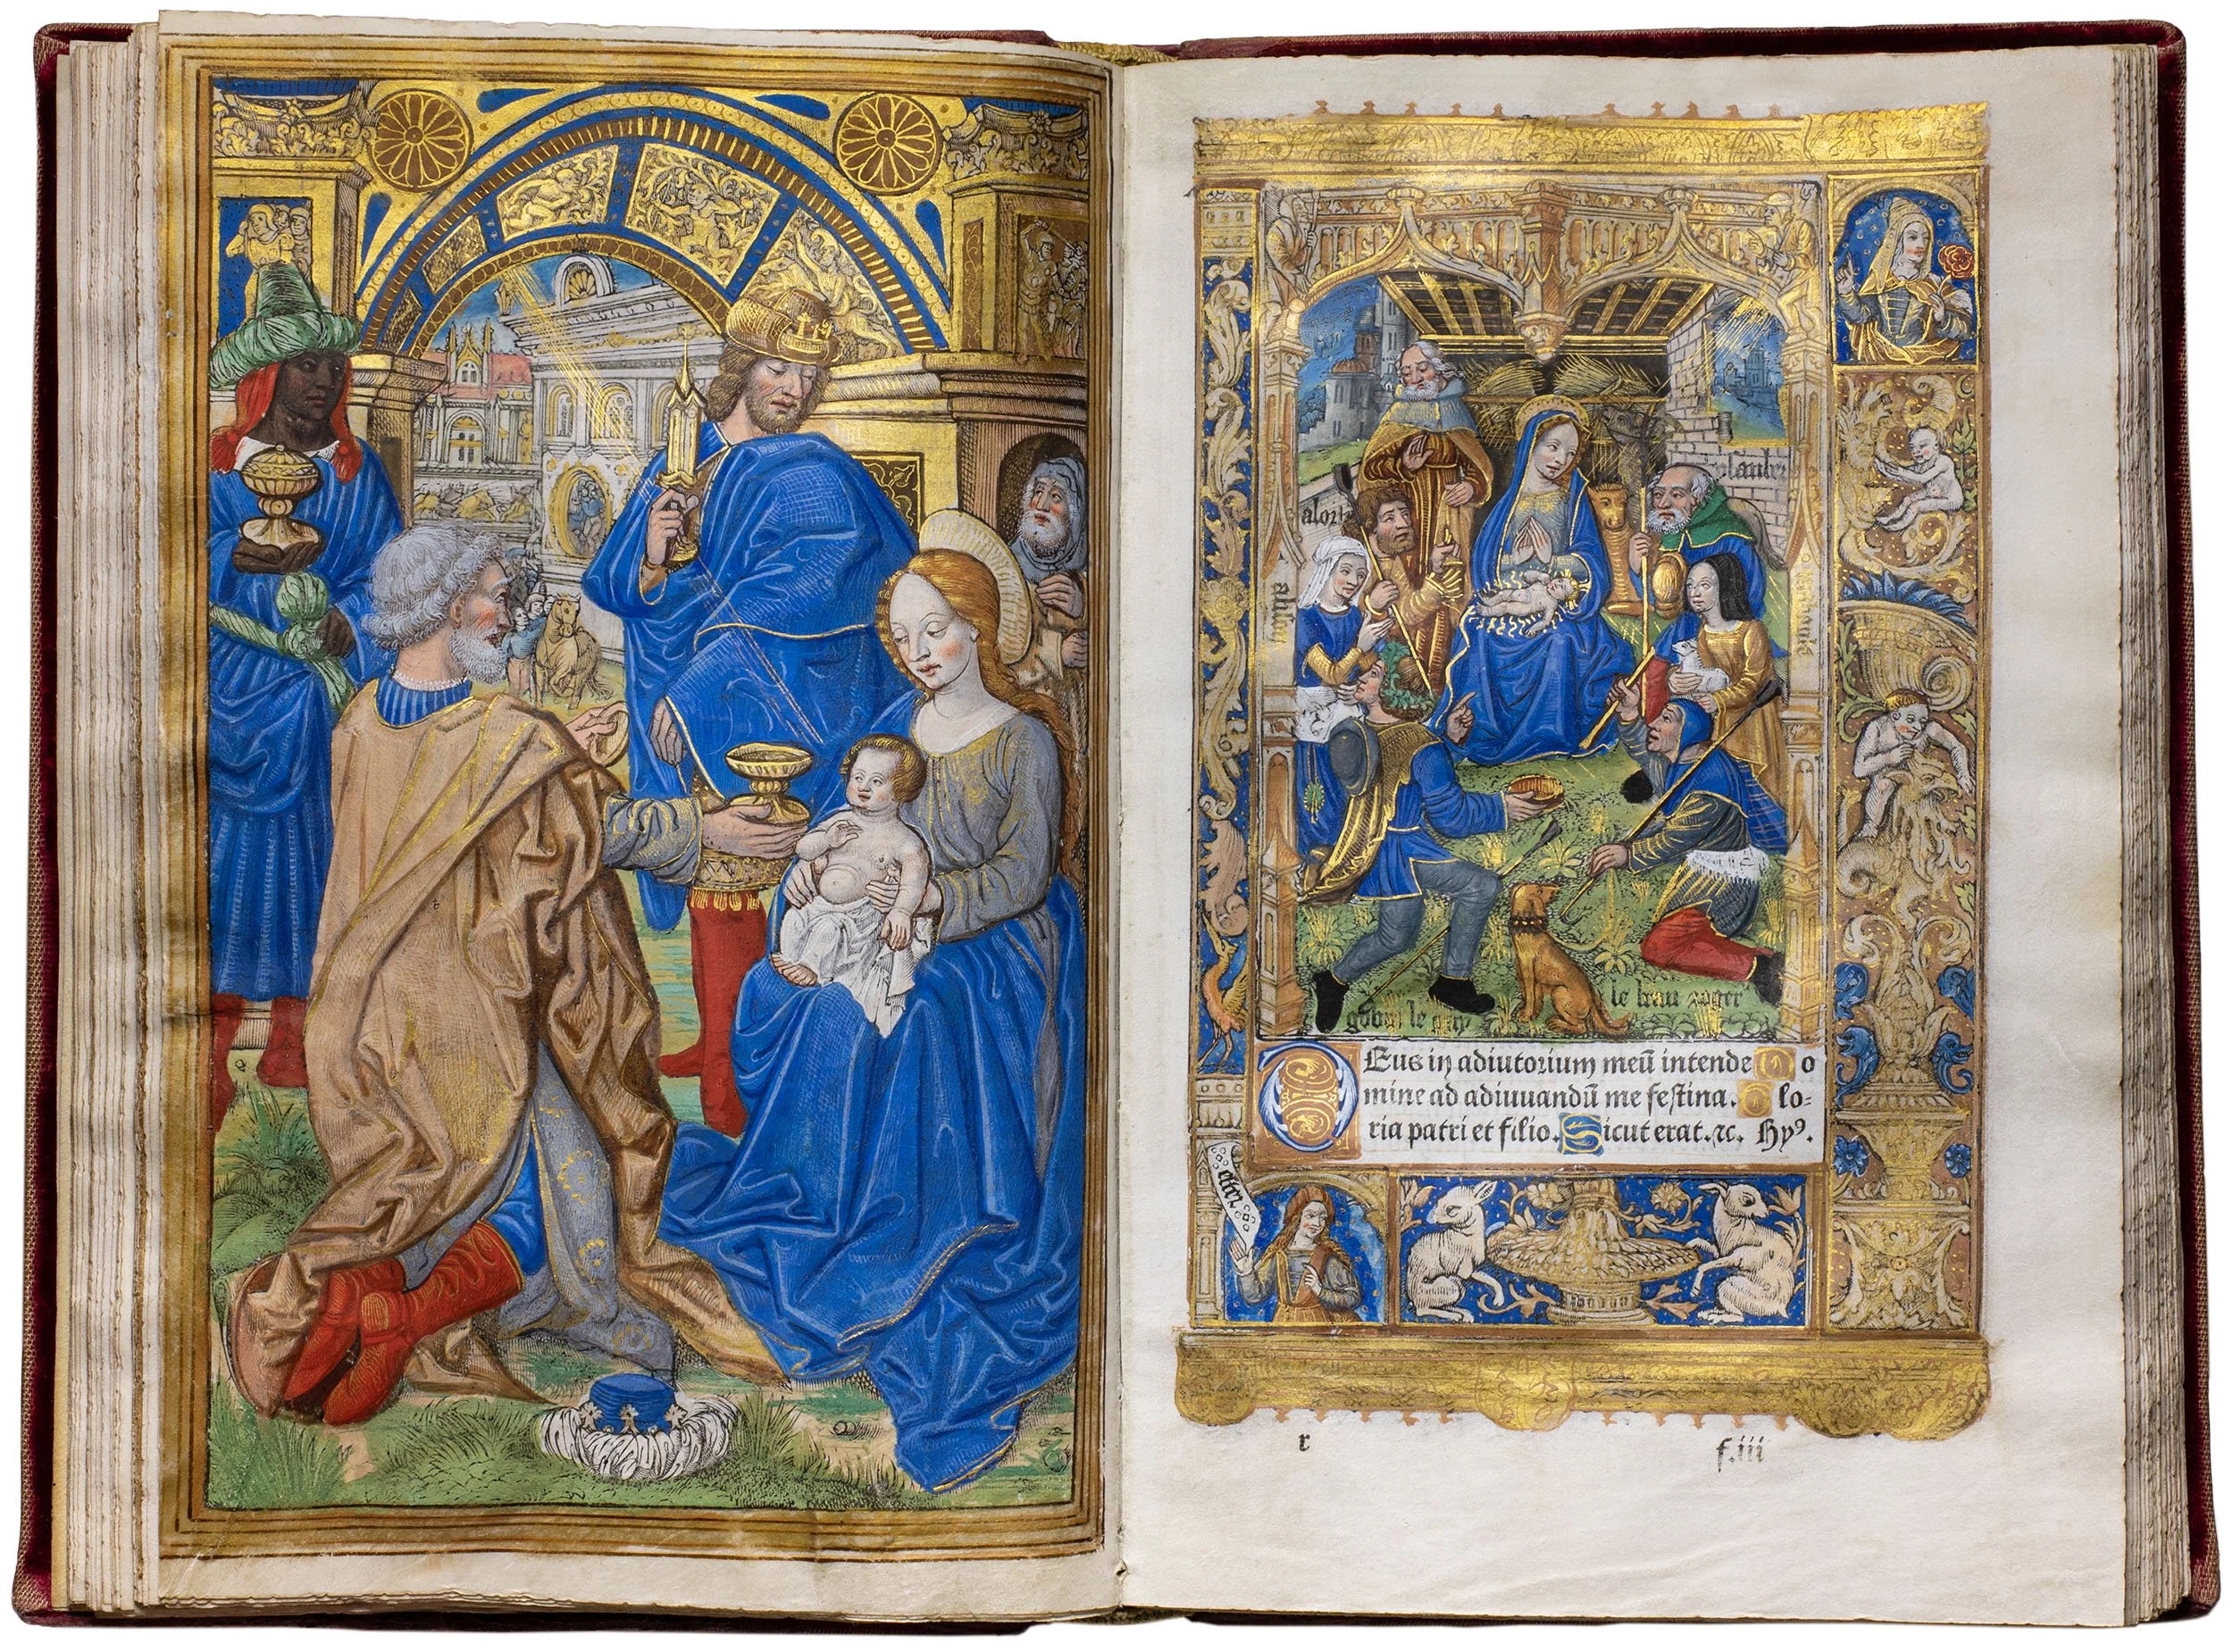 alori
alison
gobin le gay
le beau roger
Eus in adiutorium meū intende Do
mine ad adiuuandū me festina. Glo-
ria patri et filio. Sicut erat. ⁊c. Hyꝰ.
r
f.iii